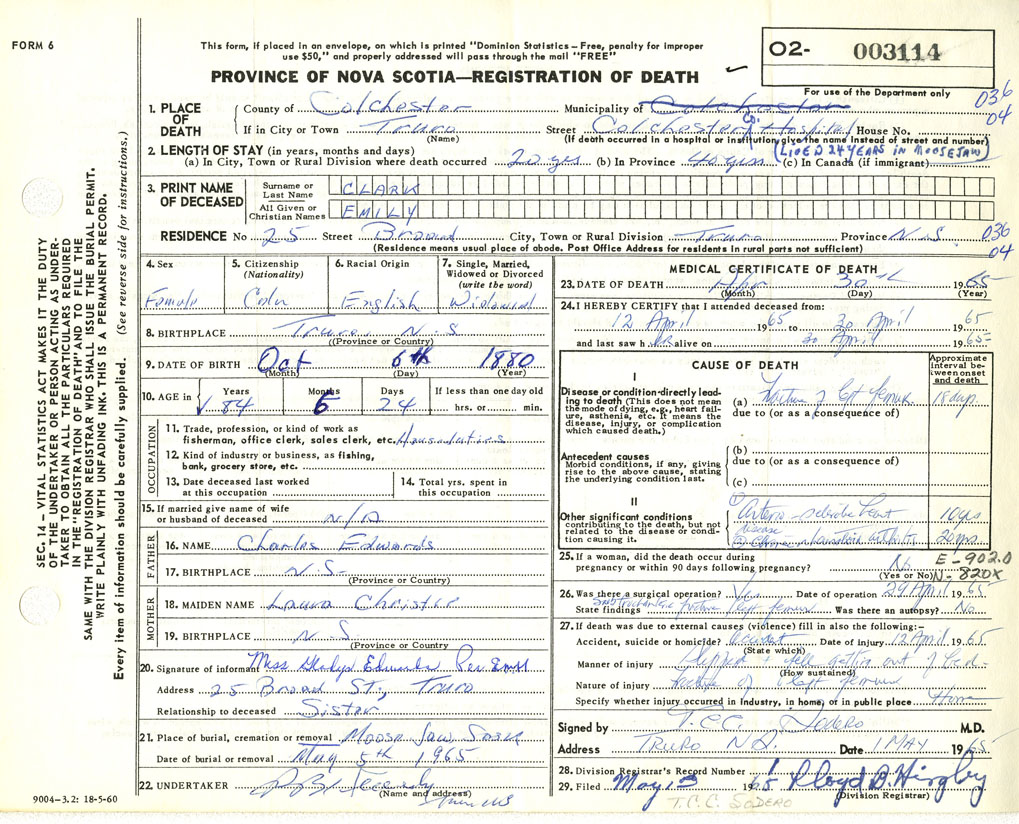 FORM 6
This form, if placed in an envelope, on which is printed "Dominion Statistics – Free, penalty for improper
use $50," and properly addressed will pass through the mail "FREE"
PROVINCE OF NOVA SCOTIA—REGISTRATION OF DEATH
O2- 003114
For use of the Department only
036
04
SEC. 14 – VITAL STATISTICS ACT MAKES IT THE DUTY
OF THE UNDERTAKER OR PERSON ACTING AS UNDER-
TAKER TO OBTAIN ALL THE PARTICULARS REQUIRED
IN THE "REGISTRATION OF DEATH" AND TO FILE THE
SAME WITH THE DIVISION REGISTRAR WHO SHALL ISSUE THE BURIAL PERMIT.
WRITE PLAINLY WITH UNFADING INK. THIS IS A PERMANENT RECORD.
Every item of information should be carefully supplied. (See reverse side for instructions.)
1. PLACE OF DEATH
County of Colchester Municipality of Colchester
If in City or Town Truro Street Colchester Co. Hospital House No.
(Name) (If death occurred in a hospital or institution, give the name instead of street and number)
2. LENGTH OF STAY (in years, months and days) (LIVED 24 YEARS IN MOOSEJAW)
(a) In City, Town or Rural Division where death occurred 20 yrs (b) In Province 40 yrs (c) In Canada (if immigrant)
3. PRINT NAME OF DECEASED
Surname or Last Name CLARK
All Given or Christian Names EMILY
RESIDENCE No 25 Street Broad City, Town or Rural Division Truro Province N.S
036
04
(Residence means usual place of abode. Post Office Address for residents in rural parts not sufficient)
4. Sex 5. Citizenship (Nationality) 6. Racial Origin 7. Single, Married, Widowed or Divorced (write the word)
Female Cdn English Widowed
8. BIRTHPLACE Truro, N.S
(Province or Country)
9. DATE OF BIRTH Oct 6th 1880
(Month) (Day) (Year)
10. AGE in Years Months Days If less than one day old
84 6 24 hrs. or min.
OCCUPATION
11. Trade, profession, or kind of work as
fisherman, office clerk, sales clerk, etc. Housduties
12. Kind of industry or business, as fishing,
bank, grocery store, etc.
13. Date deceased last worked
at this occupation
14. Total yrs. spent in
this occupation
15. If married give name of wife
or husband of deceased N/A
FATHER
16. NAME Charles Edwards
17. BIRTHPLACE N.S.
(Province or Country)
MOTHER
18. MAIDEN NAME Laura Christie
19. BIRTHPLACE N.S
(Province or Country)
20. Signature of informant Miss Gladys Edwards Per
Address 25 Broad ST., Truro
Relationship to deceased Sister
21. Place of burial, cremation or removal Moose Jaw Sask
Date of burial or removal May 5th, 1965
22. UNDERTAKER
(Name and address)
9004-3.2: 18-5-60
MEDICAL CERTIFICATE OF DEATH
23. DATE OF DEATH Apr 30th 1965
(Month) (Day) (Year)
24. I HEREBY CERTIFY that I attended deceased from:
12 April 1965 to 30 April 1965
and last saw her alive on 30 April 1965
CAUSE OF DEATH
Approximate interval between onset and death
I
Disease or condition directly leading to death (This does not mean the mode of dying, e.g., heart failure, asthenia, etc. It means the disease, injury, or complication which caused death.)
(a) Fracture of left femur 18 days
due to (or as a consequence of)
Antecedent causes
Morbid conditions, if any, giving rise to the above cause, stating the underlying condition last.
(b)
due to (or as a consequence of)
(c)
II
Other significant conditions
contributing to the death, but not related to the disease or condition causing it.
① Arterio-sclerotic heart disease 10 yrs
② rheumatoid arthritis 20 yrs.
25. If a woman, did the death occur during
pregnancy or within 90 days following pregnancy? No
(Yes or No)
E-902.0
N-820X
26. Was there a surgical operation? Yes Date of operation 29 April 1965
State findings Subtrochanteric fracture left femur Was there an autopsy? No
27. If death was due to external causes (violence) fill in also the following:–
Accident, suicide or homicide? Accident Date of injury 12 April 1965
(State which)
Manner of injury Slipped + fell getting out of bed
(How sustained)
Nature of injury fracture of left femur
Specify whether injury occurred in industry, in home, or in public place Home
Signed by T.C.C. Sodero M.D.
Address TRURO N.S. Date 1 MAY 1965
28. Division Registrar's Record Number
29. Filed May 3 1965 Lloyd D Higby
(Division Registrar)
T.C.C. SODERO